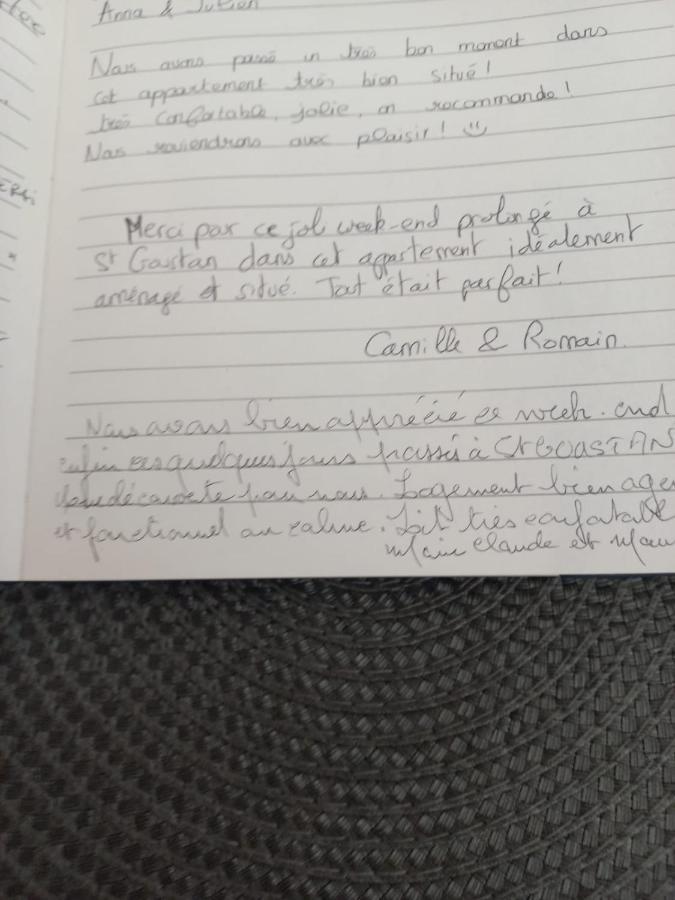 Anna & Julien
Nous avons passé un très bon moment dans
cet appartement très bien situé !
très confortable, jolie, on recommande !
Nous reviendrons avec plaisir ! ☺
Merci par ce jol week-end prolongé à
St Goustan dans cet appartement idéalement
aménagé et situé. Tout était parfait !
Camille & Romain.
Nous avons bien apprécié ce week-end
enfin ces quelques jours passés à St GOUSTAN
découverte pour nous. Logement bien age
et fonctionnel au calme. Lit très confortable
Claude et